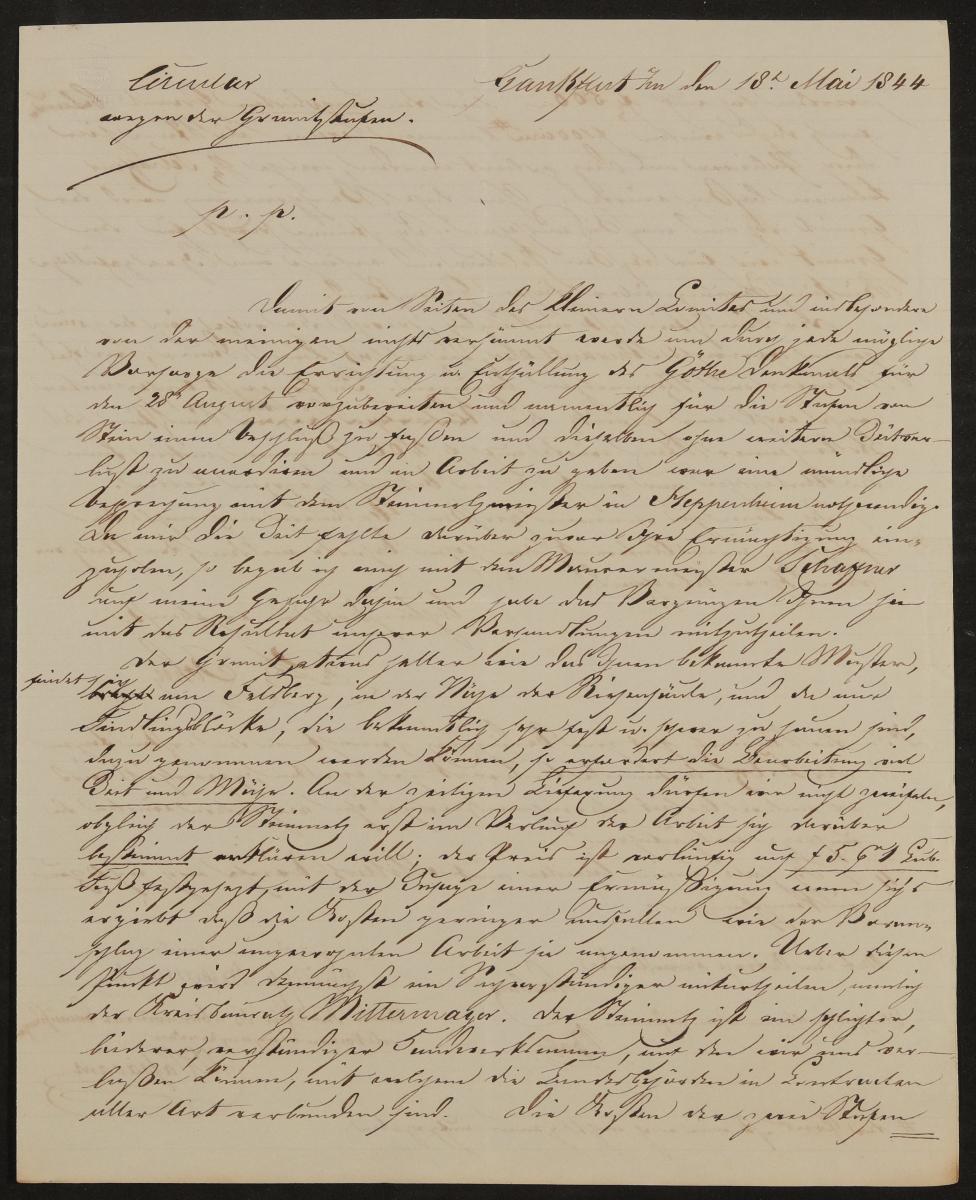 Circular
wegen der Granitstufen.
Frankfurt a/m den 18t. Mai 1844
p. p.
Damit von Seiten des kleinern Comités und insbesondere
von der meinigen nichts versäumt werde um durch jede mögliche
Vorsorge die Errichtung u. Enthüllung des Göthe Denkmals für
den 28t August vorzubereiten und namentlich für die Stufen von
Stein einen Beschluß zu fassen und dieselben ohne weitern Zeitver-
lust zu accordiren und in Arbeit zu geben war eine mündliche
Besprechung mit dem Steinmetzmeister in Heppenheim nothwendig.
Da mir die Zeit fehlte darüber zuvor Ihre Ermächtigung ein-
zuholen, so begab ich mich mit dem Maurermeister
auf meine Gefahr dahin und habe das Vergnügen Ihnen hie
mit das Resultat unserer Verhandlungen mitzutheilen.
Der Granit etwas heller wie das Ihnen bekannte Muster,
findet sich am Feldberg, in der Nähe der Riesensäule, und da nur
Findlingsblöcke, die bekanntlich sehr fest u. schwer zu hauen sind,
dazu genommen werden können, so erfordert die Bearbeitung viel
Zeit und Mühe. An der zeitigen Lieferung dürfen wir nicht zweifeln,
obgleich der Steinmetz erst im Verlauf der Arbeit sich darüber
bestimmt erklären will; der Preis ist vorläufig auf f 5. p 1 Cub.
Fuß festgesetzt, mit der Zusage einer Ermäßigung wenn sich's
ergiebt daß die Kosten geringer ausfallen wie der Voran-
schlag einer ungewohnten Arbeit sie angenommen. Ueber diesen
Punkt wird demnächst ein Sachverständiger miturtheilen, nemlich
der Kreisbaurath Mittermayer. Der Steinmetz ist ein schlichter,
biederer, verständiger Handwerksmann, auf den wir uns ver-
lassen können, mit welchem die Landesbehörden in Contracten
aller Art verbunden sind. Die Kosten der zwei Stufen